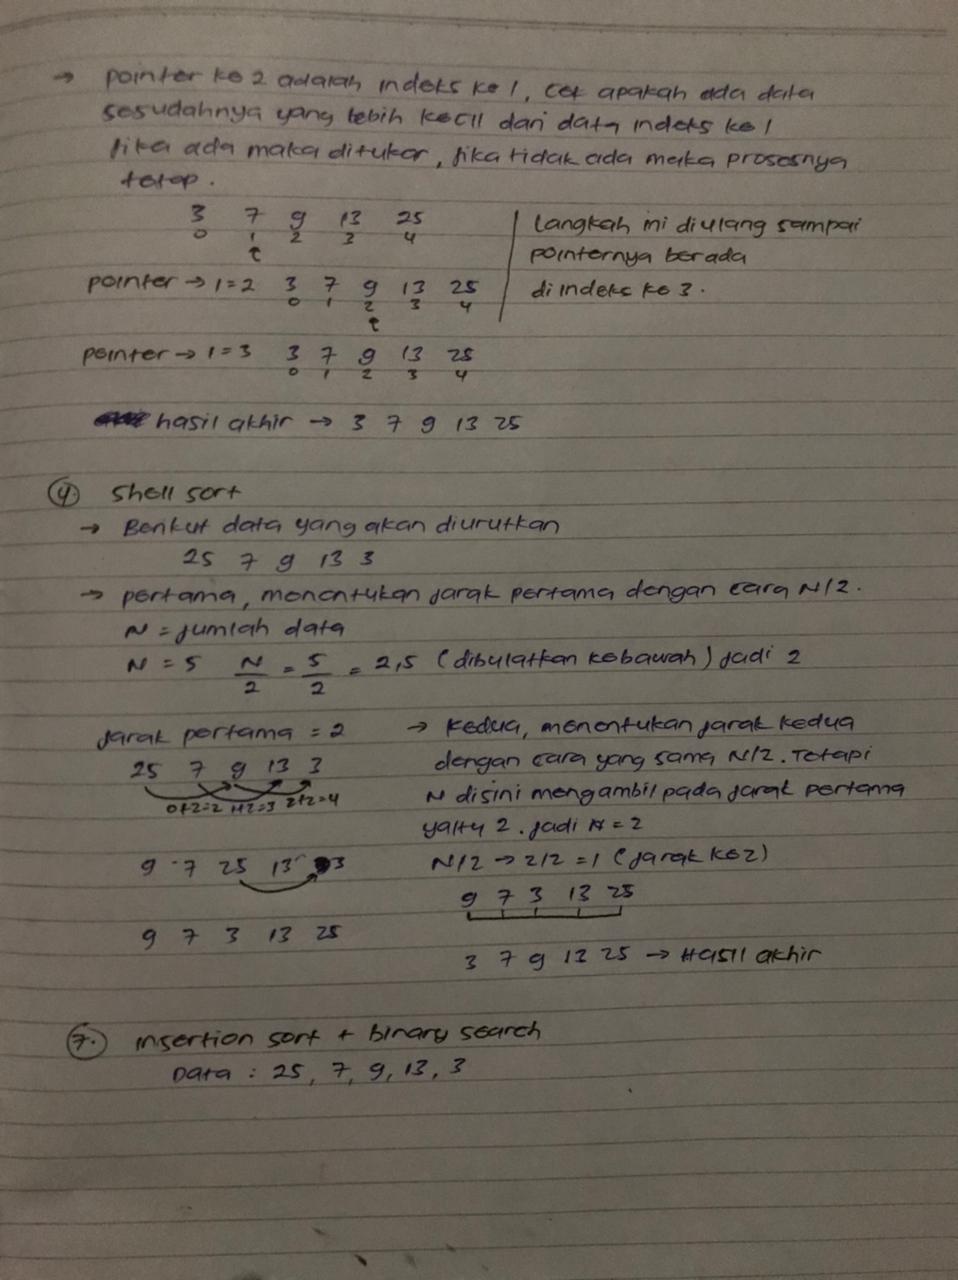 → pointer ke 2 adalah indeks ke 1, cek apakah ada data
sesudahnya yang lebih kecil dari data indeks ke 1
jika ada maka ditukar, jika tidak ada maka prosesnya
tetap.
3 7 9 13 25
0 1 2 3 4
↑
pointer → 1 = 2 3 7 9 13 25
0 1 2 3 4
↑
pointer → 1 = 3 3 7 9 13 25
0 1 2 3 4
Langkah ini diulang sampai
pointernya berada
di indeks ke 3.
hasil akhir → 3 7 9 13 25
4 Shell sort
→ Berikut data yang akan diurutkan
25 7 9 13 3
→ pertama, menentukan jarak pertama dengan cara N/2.
N = jumlah data
N = 5 N/2 = 5/2 = 2,5 (dibulatkan kebawah) jadi 2
jarak pertama = 2
25 7 9 13 3
0+2=2 1+2=3 2+2=4
9 7 25 13 3
9 7 3 13 25
→ Kedua, menentukan jarak kedua
dengan cara yang sama N/2. Tetapi
N disini mengambil pada jarak pertama
yaitu 2. jadi N = 2
N/2 → 2/2 = 1 (jarak ke 2)
9 7 3 13 25
3 7 9 13 25 → Hasil akhir
7. insertion sort + binary search
Data : 25, 7, 9, 13, 3